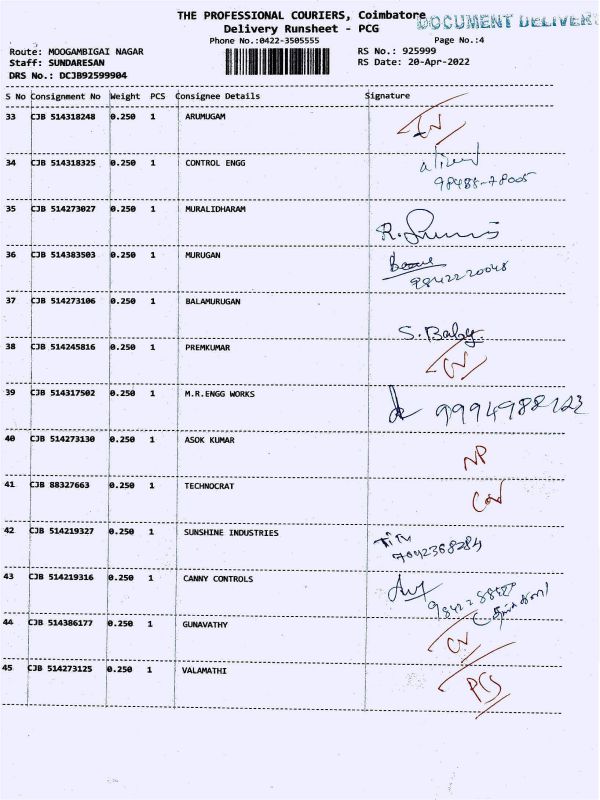 THE PROFESSIONAL COURIERS, Coimbatore
DOCUMENT DELIVER
Delivery Runsheet - PCG
Phone No.:0422-3505555
Page No.:4
Route: MOOGAMBIGAI NAGAR
RS No.: 925999
Staff: SUNDARESAN
RS Date: 20-Apr-2022
DRS No.: DCJB92599904
S No Consignment No Weight PCS Consignee Details Signature
33 CJB 514318248 0.250 1 ARUMUGAM
34 CJB 514318325 0.250 1 CONTROL ENGG
98488-78005
35 CJB 514273027 0.250 1 MURALIDHARAM
36 CJB 514383503 0.250 1 MURUGAN
9842220048
37 CJB 514273106 0.250 1 BALAMURUGAN
S. Baby
38 CJB 514245816 0.250 1 PREMKUMAR
39 CJB 514317502 0.250 1 M.R.ENGG WORKS
9994988123
40 CJB 514273130 0.250 1 ASOK KUMAR
NP
41 CJB 88327663 0.250 1 TECHNOCRAT
42 CJB 514219327 0.250 1 SUNSHINE INDUSTRIES
7042368284
43 CJB 514219316 0.250 1 CANNY CONTROLS
44 CJB 514386177 0.250 1 GUNAVATHY
45 CJB 514273125 0.250 1 VALAMATHI
PCS